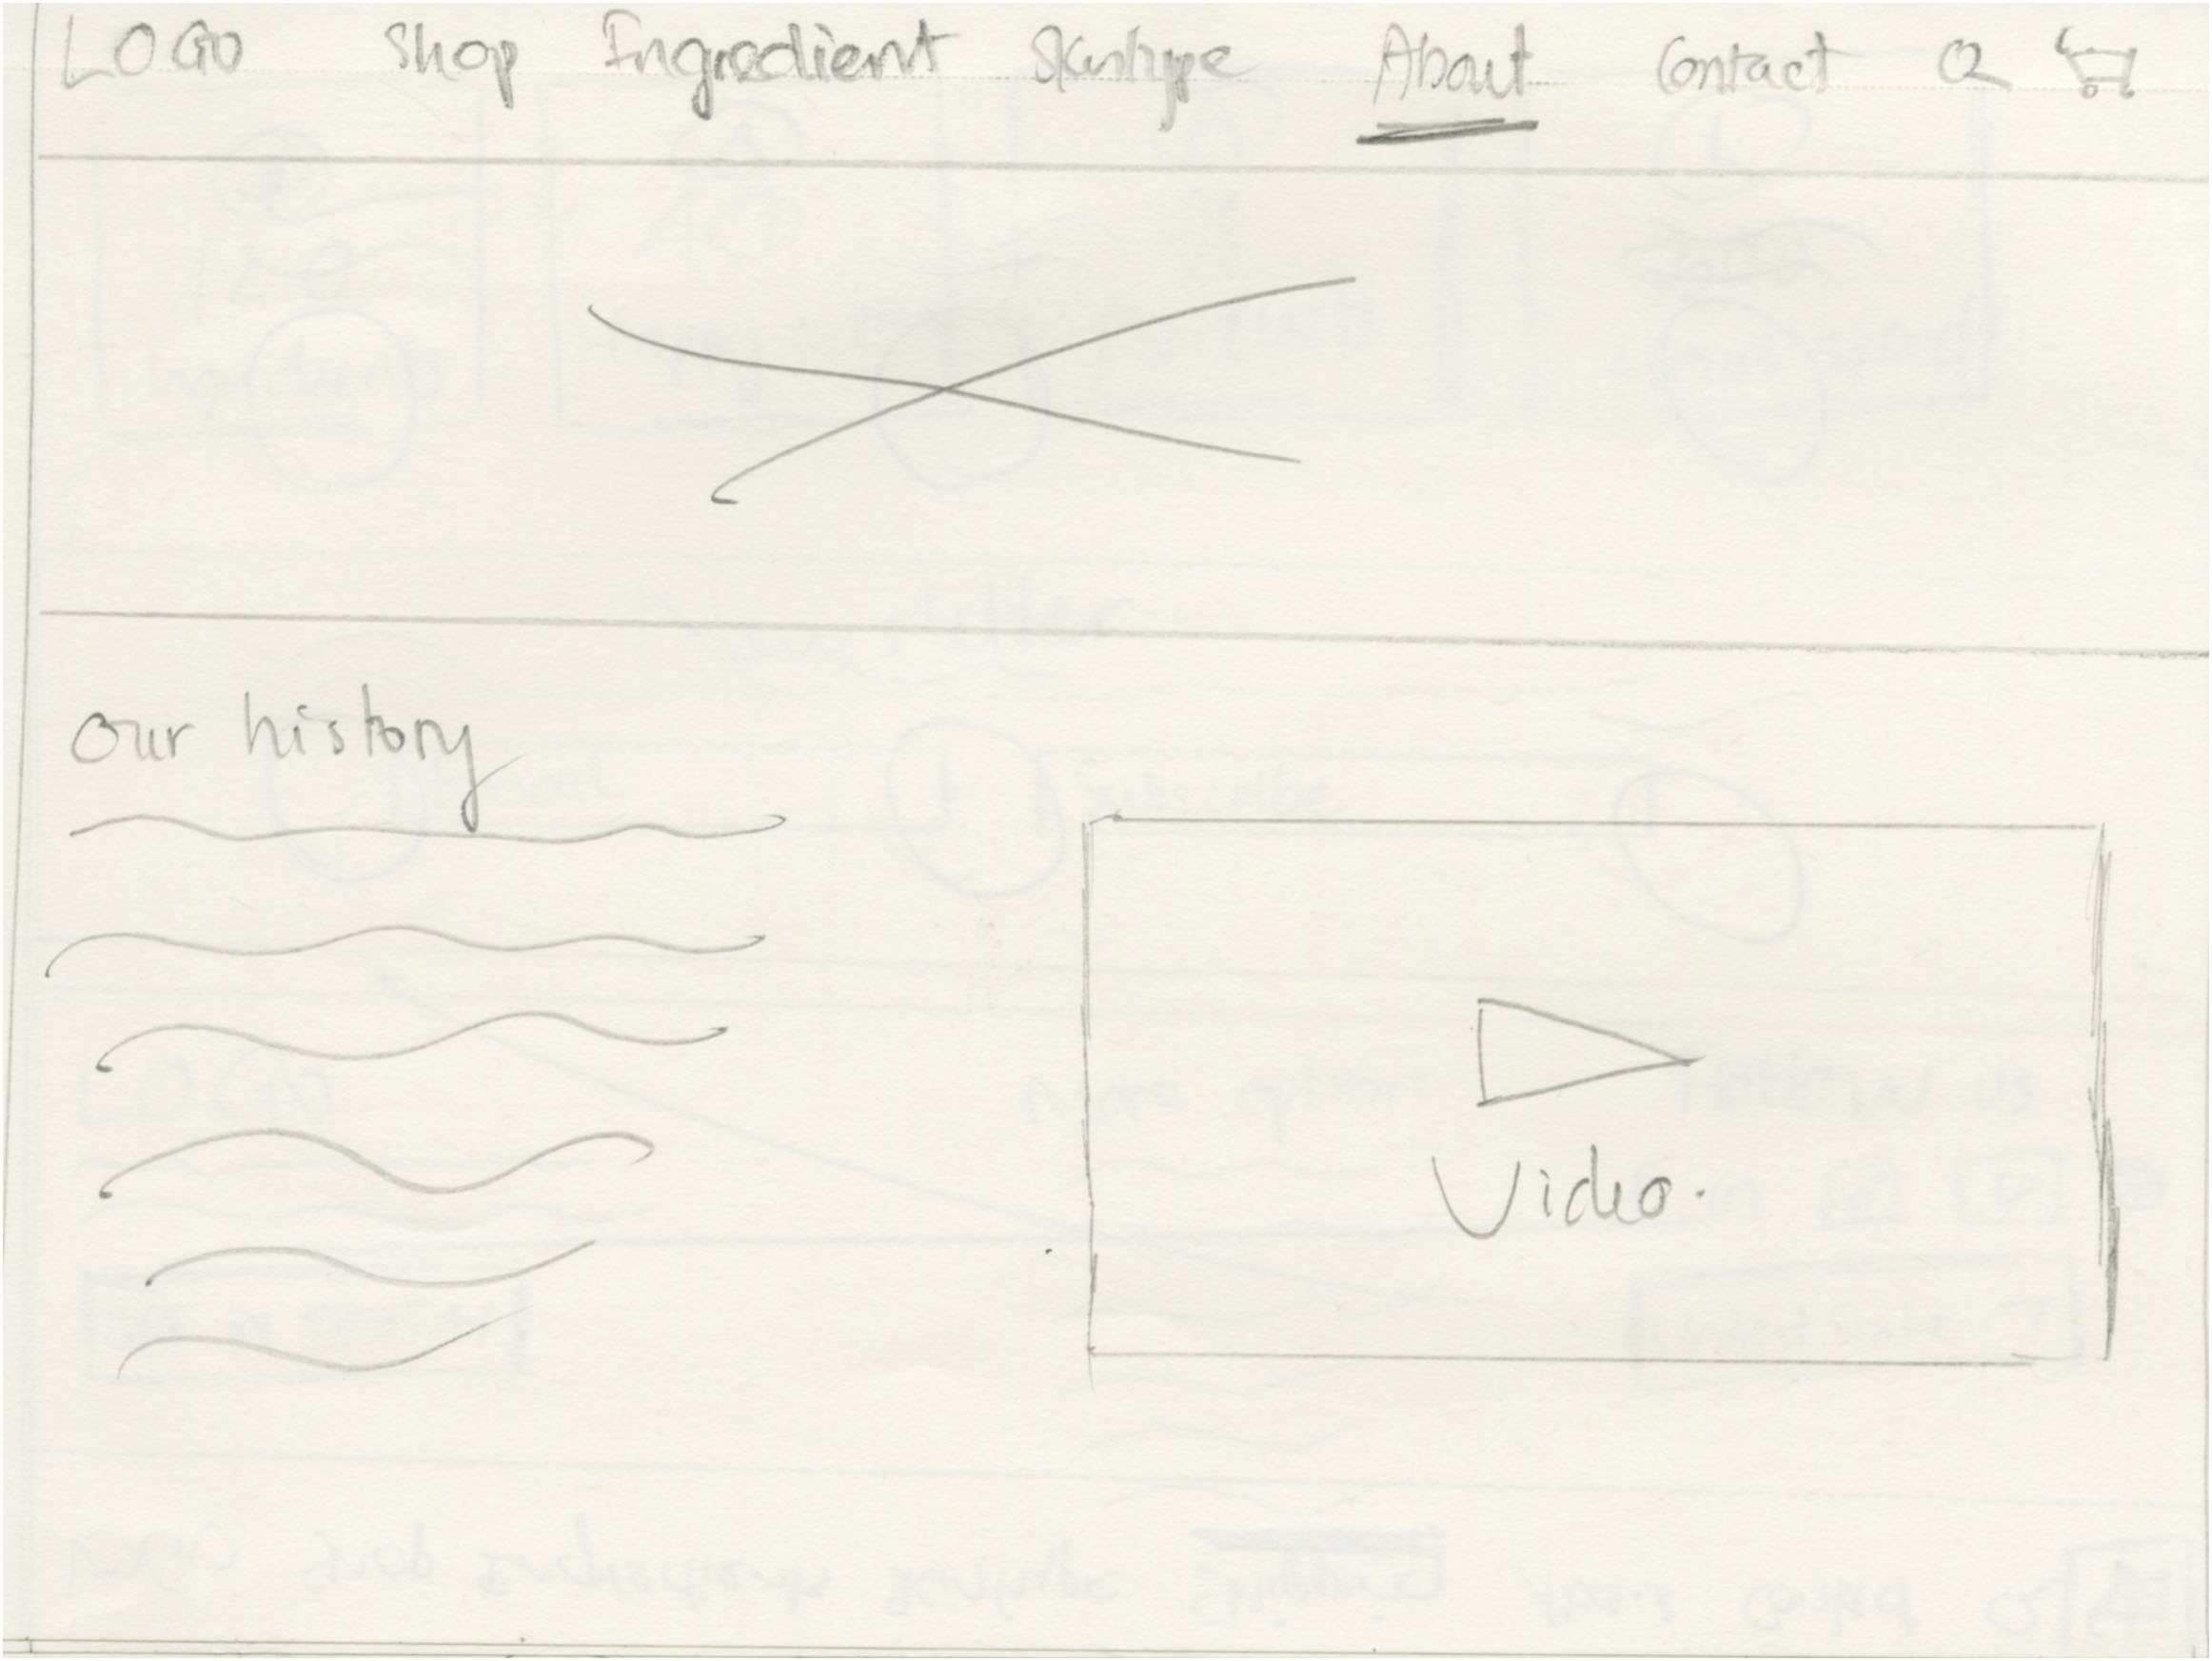 LOGO Shop Ingredient Skintype About Contact
Our history
Video.